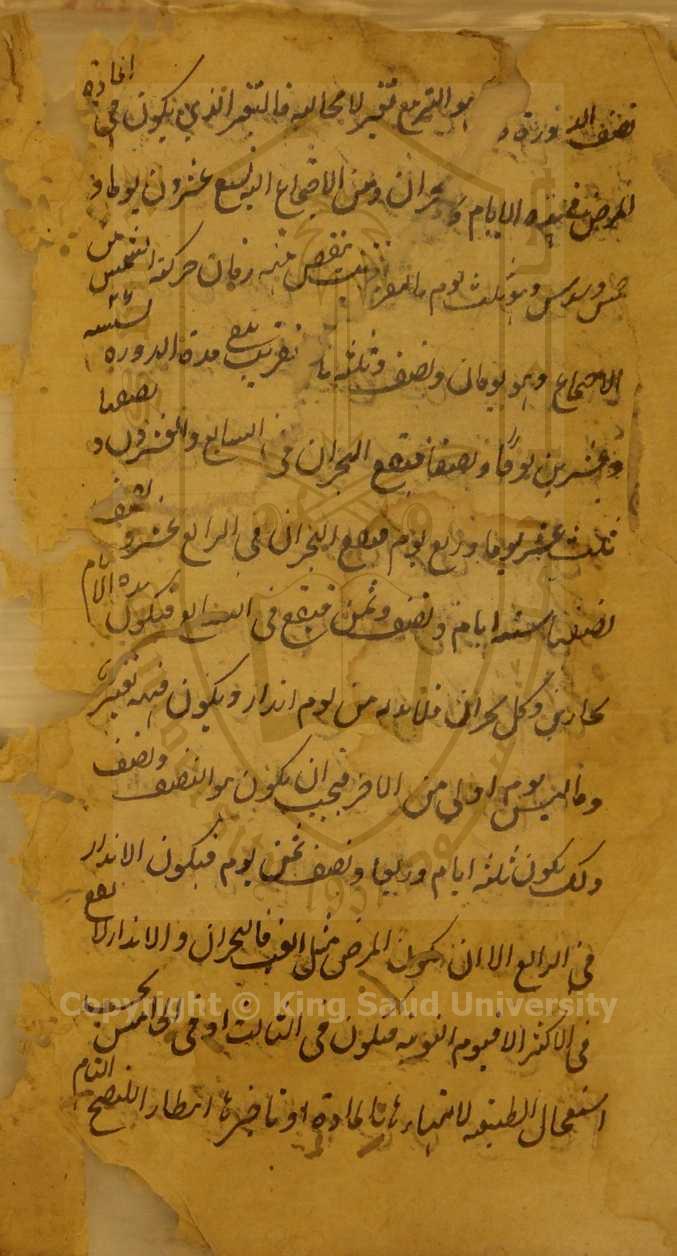 نصف الدورة و هو التربيع تغير لا محالة فالتغير الذي يكون في المادة
المرض في هذه الايام و بحران ومن الاجتماع اليه تسع عشرون يوما و
خمس وسدس وهو ثلث يوم بالتقريب تنقص منه زمان حركة الشمس من
الاجتماع وهو يومان ونصف وثلثه تقريبا يبقى مدة الدورة ستة
وعشرين يوما ونصفا فيقع البحران في السابع والعشرون و نصفها
ثلث عشر يوما وربع يوم فيقع البحران في الرابع عشر و نصف
نصفها ستة ايام ونصف وثمن فيقع في السابع فيكون هذه الايام
بحارين وكل بحران فلابد له من يوم انذار ويكون فيه تغير
وما ليس يوم اولى من الاخر فيجب ان يكون هو النصف ونصف
ذلك يكون ثلثة ايام وربعا ونصف ثمن يوم فيكون الانذار
في الرابع الا ان يكون المرض مثل الغب فالبحران والانذار لا يقع
في الاكثر الا في يوم النوبة فيكون في الثالث او في الخامس بحسب
استعجال الطبيعة لاشتداد المادة او تاخيرها انتظار النضج التام
Copyright © King Saud University